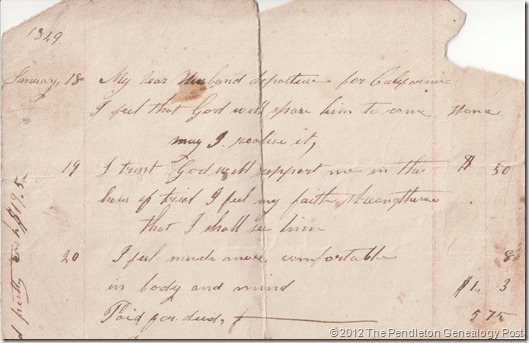 1849
January 18 My dear Husband departure for California
I feel that God will spare him to come Home
may I realise it,
19 I trust God will support me in this $ 50
hour of trial I feel my faith strengthene
that I shall see him
20 I feel much more comfortable 8
in body and mind $1. 3
Paid for 5 75
$19.5
©2012 The Pendleton Genealogy Post